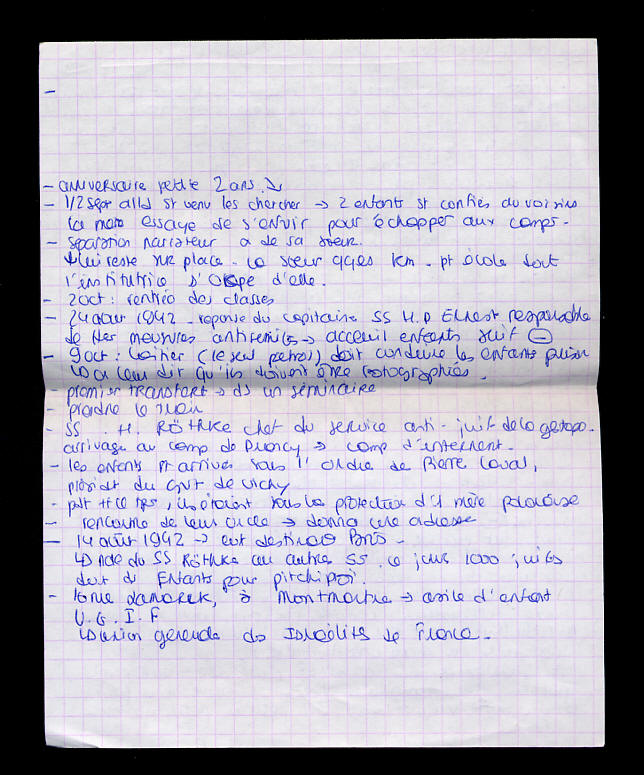 -
- anniversaire petite 2 ans. ↘
- 1/2 sept alld st venu les chercher → 2 enfants st confiés au voisins
la mère essaye de s'enfuir pour échapper aux camps -
- séparation narrateur a de sa sœur.
lui reste sur place - la sœur qques km - pt école dont
l'institutrice s' d'elle.
- 2 oct : rentrée des classes
- 24 aout 1942 - reponse du capitaine SS H.P Ernest responsable
de mesures antisemites → acceuil enfants juif ⊖
- 9 oct : (le seul ) doit conduire les enfants
↳ On leur dit qu'ils doivent être fotographiés.
- premier transfert → ds un séminaire
- prendre le train
- SS . H. RÖTHKE chef du service anti-juif de la gestapo.
arrivage au camp de Drancy → camp d'internemt.
- les enfants st arrivés sous l'ordre de Pierre Laval,
du Gvt de Vichy
- pdt tt ce tps, ils étaient sous la protection d'1 mère polonaise
- rencontre de leur oncle → donna une adresse
- 14 août 1942 → Paris -
↳ du SS Röthke au autres SS. ce jour 1000 juifs
dont des Enfants pour pitchipoï.
- 16 rue Lamarck, à Montmartre → asile d'enfant
U.G.I.F
↳ Union générale des Israélits de France -